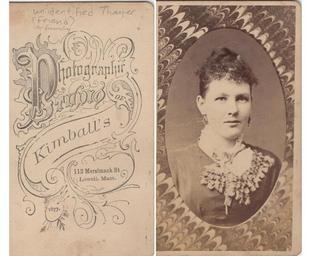 unidentified Thayer
(Friend)
Photographic
Studio
OF
Kimball's
112 Merrimack St
Lowell, Mass.